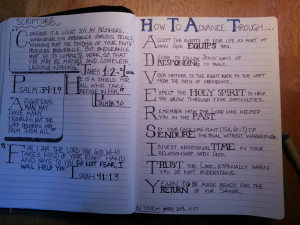 SCRIPTURE
CONSIDER IT A GREAT JOY, MY BROTHERS,
WHENEVER YOU EXPERIENCE VARIOUS TRIALS,
KNOWING THAT THE TESTING OF YOUR FAITH
PRODUCES ENDURANCE. BUT ENDURANCE
MUST DO ITS COMPLETE WORK, SO THAT
YOU MAY BE MATURE AND COMPLETE,
LACKING NOTHING.
JAMES 1:2-4
PSALM 34:19
A RIGHTEOUS
MAN MAY
HAVE MANY
TROUBLES, BUT THE
LORD DELIVERS HIM
FROM THEM ALL.
IS A SHIELD FOR
ALL WHO TAKE
REFUGE IN HIM.
FOR I AM THE LORD YOUR GOD WHO
TAKES HOLD OF YOUR RIGHT HAND
AND SAYS TO YOU, DO NOT FEAR; I
WILL HELP YOU.
ISAIAH 41:13
HOW TO ADVANCE THROUGH...
ACCEPT THE EVENTS OF YOUR LIFE AS PART OF
HOW GOD EQUIPS YOU.
DECIDE TO FOLLOW JESUS' WAYS OF
RESPONDING TO PEOPLE.
VIEW
FROM THE SIDE OF
EXPECT THE HOLY SPIRIT TO HELP
YOU GROW THROUGH YOUR DIFFICULTIES.
REMEMBER HOW THE LORD HAS HELPED
YOU IN THE PAST.
SET YOUR FACE LIKE FLINT (ISA. 50:7) TO
ENDURE THE TRIAL WITHOUT WAVERING.
INVEST ADDITIONAL TIME IN YOUR
RELATIONSHIP WITH GOD.
TRUST THE LORD, ESPECIALLY WHEN
YOU DO NOT UNDERSTAND.
YEARN TO BE MADE READY FOR THE
RETURN OF YOUR SAVIOR.